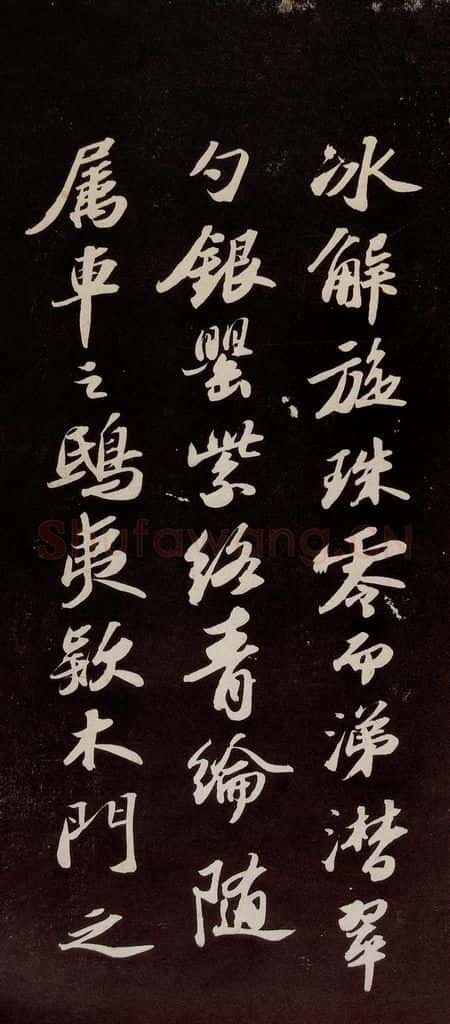 冰解旋珠零而涕潸翠
勺銀罌紫絡青綸随
属車之鴟夷款木門之
Shufawang.CN